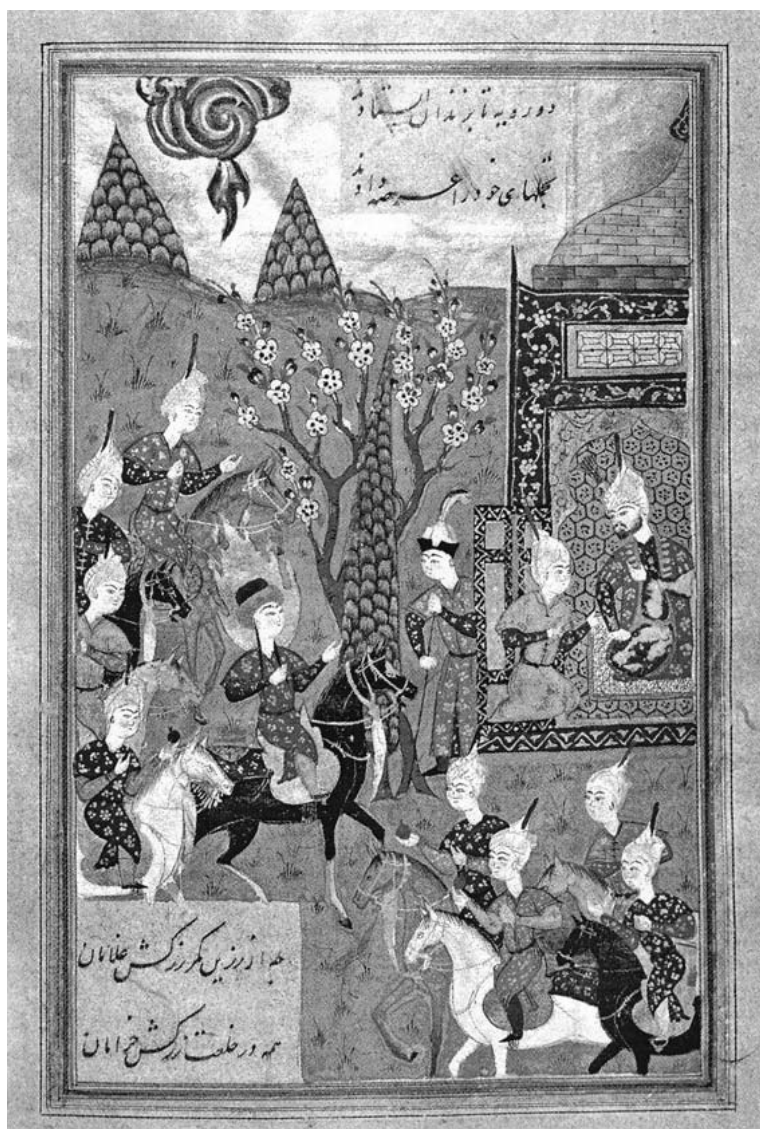 دو رویه تا بزندان ایستادند
تجملهای خود را عرضه دادند
زرین کمر زرکش غلامان
همه در خلعت زرکش خرامان